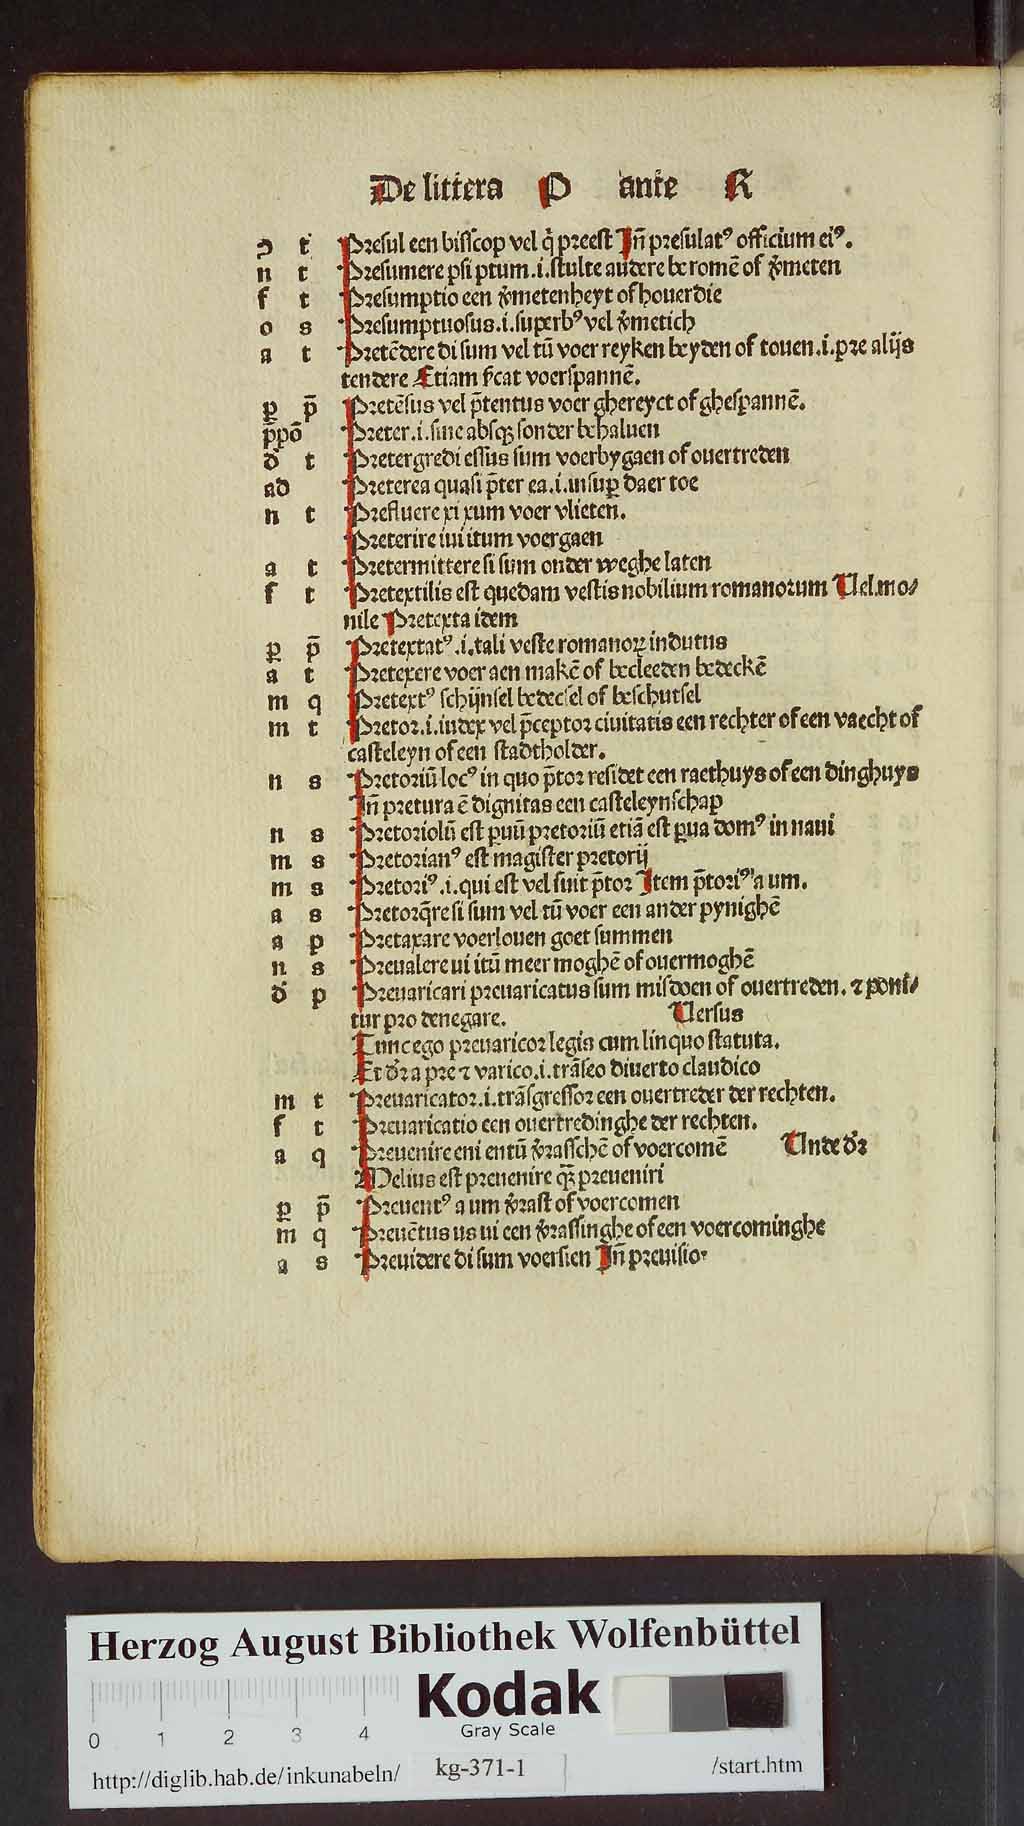 De littera P ante R
ꝯ t Presul een bisscop vel q̇ preest Iñ presulatꝰ officium eiꝰ.
n t Presumere psi ptum .i. stulte audere beromē of v̄meten
f t Presumptio een v̄metenheyt of houerdie
o s Presumptuosus .i. superbꝰ vel v̄metich
a t Pretēdere di sum vel tū voer reyken beyden of touen .i. pre alijs
tendere Etiam s̄cat voerspannē.
ꝑ p̄ Pretēsus vel p̄tentus voer ghereyct of ghespannē.
p̄põ Preter .i. sine absqꝫ sonder behaluen
đ t Pretergredi essus sum voerbygaen of ouertreden
ad Preterea quasi p̄ter ea .i. insuꝑ daer toe
n t Prefluere xi xum voer vlieten.
Preterire iui itum voergaen
a t Pretermittere si sum onder weghe laten
f t Pretextilis est quedam vestis nobilium romanorum Uel mo/
nile Pretexta idem
ꝑ p̄ Pretextatꝰ .i. tali veste romanoꝝ indutus
a t Pretexere voer aen makē of becleeden bedeckē
m q Pretextꝰ schijnsel bedecsel of beschutsel
m t Pretor .i. iudex vel p̄ceptor ciuitatis een rechter of een vaecht of
casteleyn of een stadtholder.
n s Pretoriū locꝰ in quo p̄tor residet een raethuys of een dinghuys
Iñ pretura ē dignitas een casteleynschap
n s Pretoriolū est ꝑuū pretoriū etiā est ꝑua domꝰ in naui
m s Pretorianꝰ est magister pretorij
m s Pretoriꝰ .i. qui est vel fuit p̄tor Item p̄toriꝰ a um.
a s Pretorq̄re si sum vel tū voer een ander pynighē
a p Pretaxare voerlouen goet summen
n s Preualere ui itū meer moghē of ouermoghē
đ p Preuaricari preuaricatus sum misdoen of ouertreden. ⁊ poni/
tur pro denegare. Uersus
Tunc ego preuaricor legis cum linquo statuta.
Et đr a pre ⁊ varico .i. trāseo diuerto claudico
m t Preuaricator .i. trāsgressor een ouertreder der rechten.
f t Preuaricatio een ouertredinghe der rechten.
a q Preuenire eni entū v̄rasschē of voercomē Unde đr
Melius est preuenire qꝫ preueniri
ꝑ p̄ Preuentꝰ a um v̄rast of voercomen
m q Preuētus us ui een v̄rassinghe of een voercominghe
a s Preuidere di sum voersien Iñ preuisio
Herzog August Bibliothek Wolfenbüttel
Kodak
Gray Scale
0 1 2 3 4
http://diglib.hab.de/inkunabeln/ kg-371-1 /start.htm